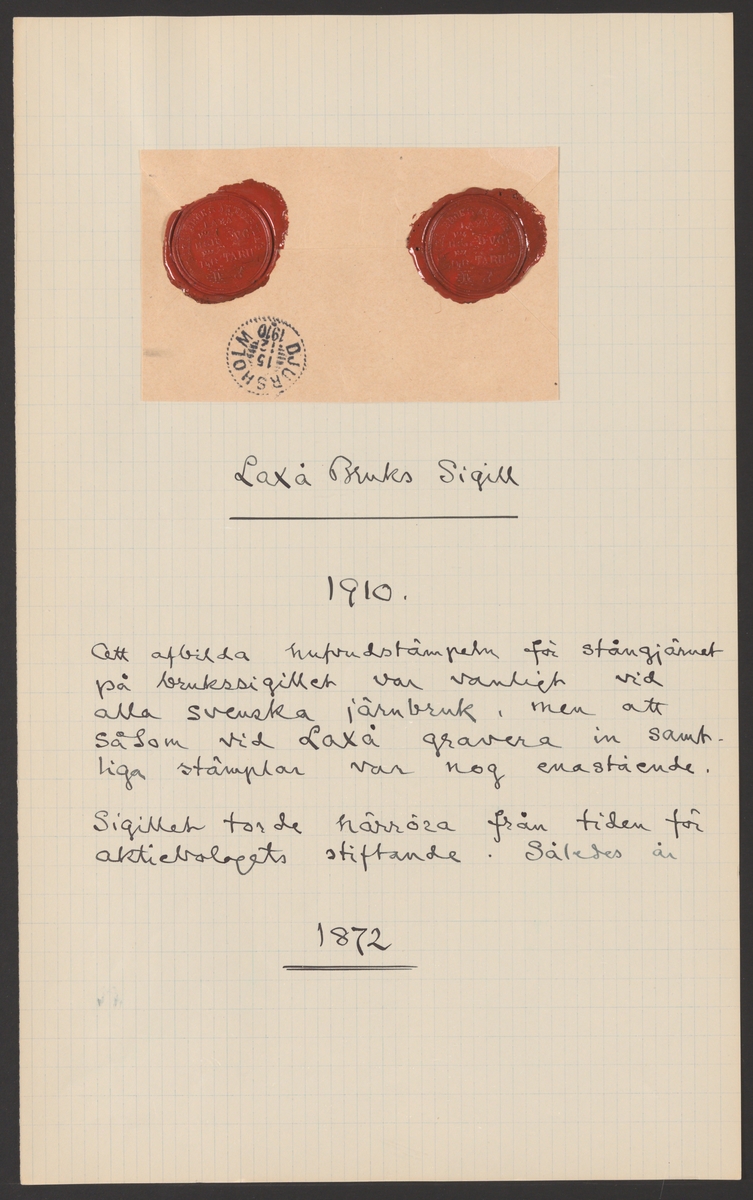 DJURSHOLM
15
1910
Laxå Bruks Sigill
1910.
Att afbilda hufvudstämpeln för stångjärnet
på brukssigillet var vanligt vid
alla svenska järnbruk, men att
såsom vid Laxå gravera in samt-
liga stämplar var nog enastående.
Sigillet torde härröra från tiden för
aktiebolagets stiftande. Således år
1872